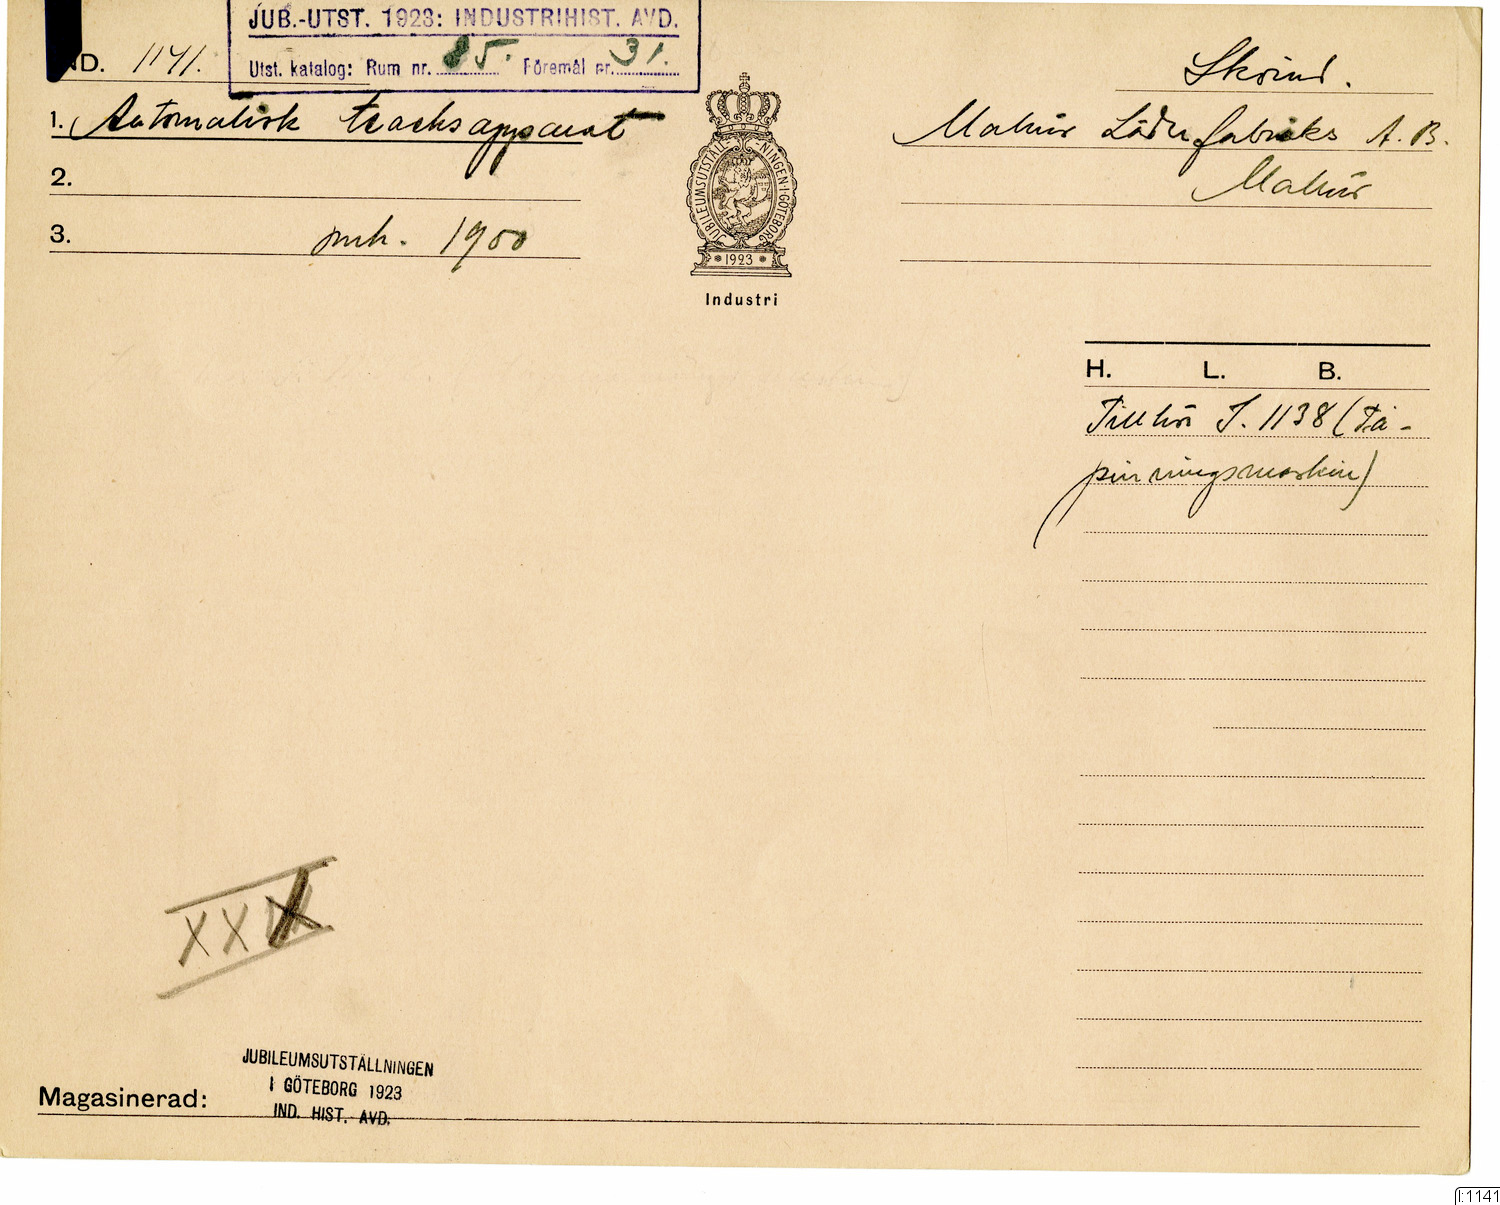 JUB.-UTST. 1923: INDUSTRIHIST. AVD.
Utst. katalog: Rum nr. 85. Föremål nr. 31.
ND. 1141.
Skoind.
1. Automatisk tracksapparat
Malmö Läderfabriks A.B.
2.
Malmö
3. omk. 1900
JUBILEUMSUTSTÄLLNINGEN·I·GÖTEBORG
* 1923 *
Industri
H. L. B.
Tillhör I. 1138 (Tå-
pinningsmaskin)
XX
JUBILEUMSUTSTÄLLNINGEN
I GÖTEBORG 1923
IND. HIST. AVD.
Magasinerad:
I:1141